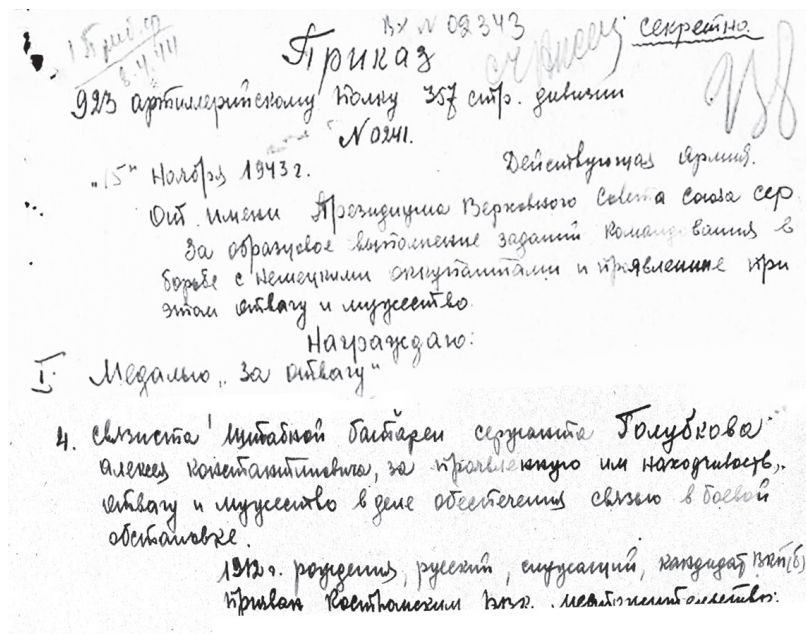 Вх N 02343
секретно.
1 Приб. ср
8.4.44
Приказ
923 артиллерийскому полку 357 стр. дивизии
N 0241.
"15" Ноября 1943 г. Действующая Армия.
От имени Президиума Верховного Совета Союза ССР
За образцовое выполнение заданий командования в
борьбе с немецкими оккупантами и проявленные при
этом отвагу и мужество
Награждаю:
I. Медалью „За отвагу"
4. связиста штабной батареи сержанта Голубкова
Алексея Константиновича, за проявленную им находчивость,
отвагу и мужество в деле обеспечения связью в боевой
обстановке.
1912 г. рождения, русский, служащий, кандидат ВКП(б)
призван Костромским ВВК. местожительство: